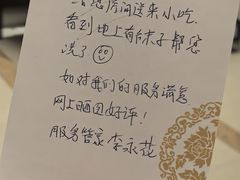 您房间送来小吃.
看到地上有袜子帮您
洗了
如对我们的服务满意
网上晒图好评!
服务管家 李永花